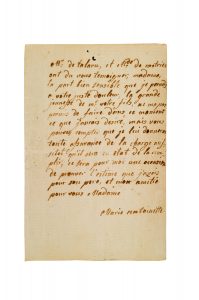 Mr. de talaru, et Mde. de
ont du vous temoigner, madame,
la part bien sensible que je prends
a votre juste douleur, la grande
jeunesse de mr votre fils, ne m'ayant
permis de faire dans ce moment
ce que j'aurois desiré, mais vous
pouvez compter que je lui donnerai
toute assurance de la charge aus-
sitot qu'il sera en etat de la rem-
plir, ce sera pour moi une occasion
de prouver l'estime que j'avois
pour son pere, et mon amitié
pour vous Madame
Marie antoinette